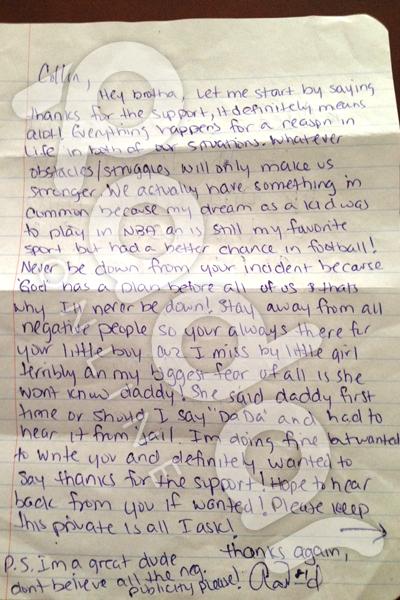 Collin,
Hey brotha, Let me start by saying
thanks for the support, it definitely means
alot! Everything happens for a reason in
life in both of our situations. Whatever
obstacles/struggles will only make us
stronger. We actually have something in
common because my dream as a kid was
to play in NBA an is still my favorite
sport but had a better chance in football!
Never be down from your incident because
God has a plan before all of us & thats
why I'll never be down! Stay away from all
negative people so your always there for
your little boy cuz I miss by little girl
terribly an my biggest fear of all is she
wont know daddy! She said daddy first
time or should I say "DaDa" and had to
hear it from jail. I'm doing fine but wanted
to write you and definitely wanted to
say thanks for the support! Hope to hear
back from you if wanted! Please keep
this private is all I ask!
thanks again,
P.S. Im a great dude
dont believe all the neg.
publicity please!